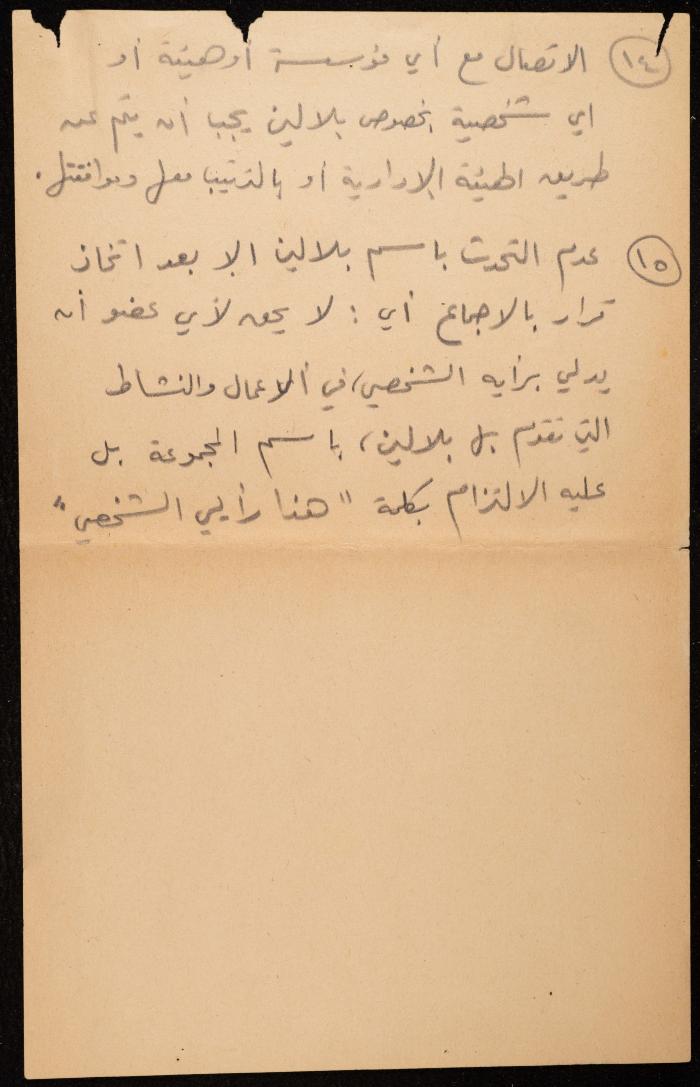 ١٤ الاتصال مع أي مؤسسة أو هيئة أو
اي شخصية بخصوص بلالين يجب أن يتم عن
طريق الهيئة الادارية أو بالترتيب معها وموافقتها.
١٥ عدم التحدث باسم بلالين الا بعد اتخاذ
قرار بالاجماع أي : لا يحق لأي عضو أن
يدلي برأيه الشخصي، في الاعمال والنشاط
التي تقوم بها بلالين، باسم المجموعة بل
عليه الالتزام بكلمة "هذا رأيي الشخصي"